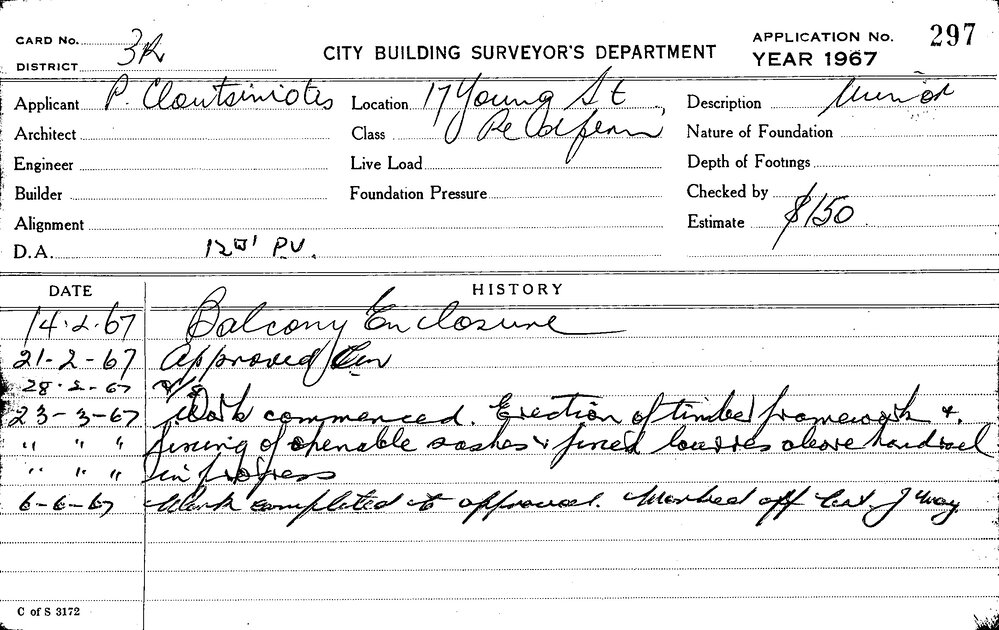 CARD No. CITY BUILDING SURVEYOR'S DEPARTMENT APPLICATION No. 297
DISTRICT 3R YEAR 1967
Applicant P. Cloutsiniotis Location 17 Young St Description Minor
Architect Class Redfern Nature of Foundation
Engineer Live Load Depth of Footings
Builder Foundation Pressure Checked by
Alignment Estimate $150
D.A. P.V.
DATE HISTORY
14.2.67 Balcony Enclosure
21-2-67 Approved
28.2.67
23-3-67 Work commenced. Erection of timber framework &
" " " fixing of openable sashes & fixed louvres above handrail
" " " in progress
6-6-67 Work completed to approval. Marked off
C of S 3172